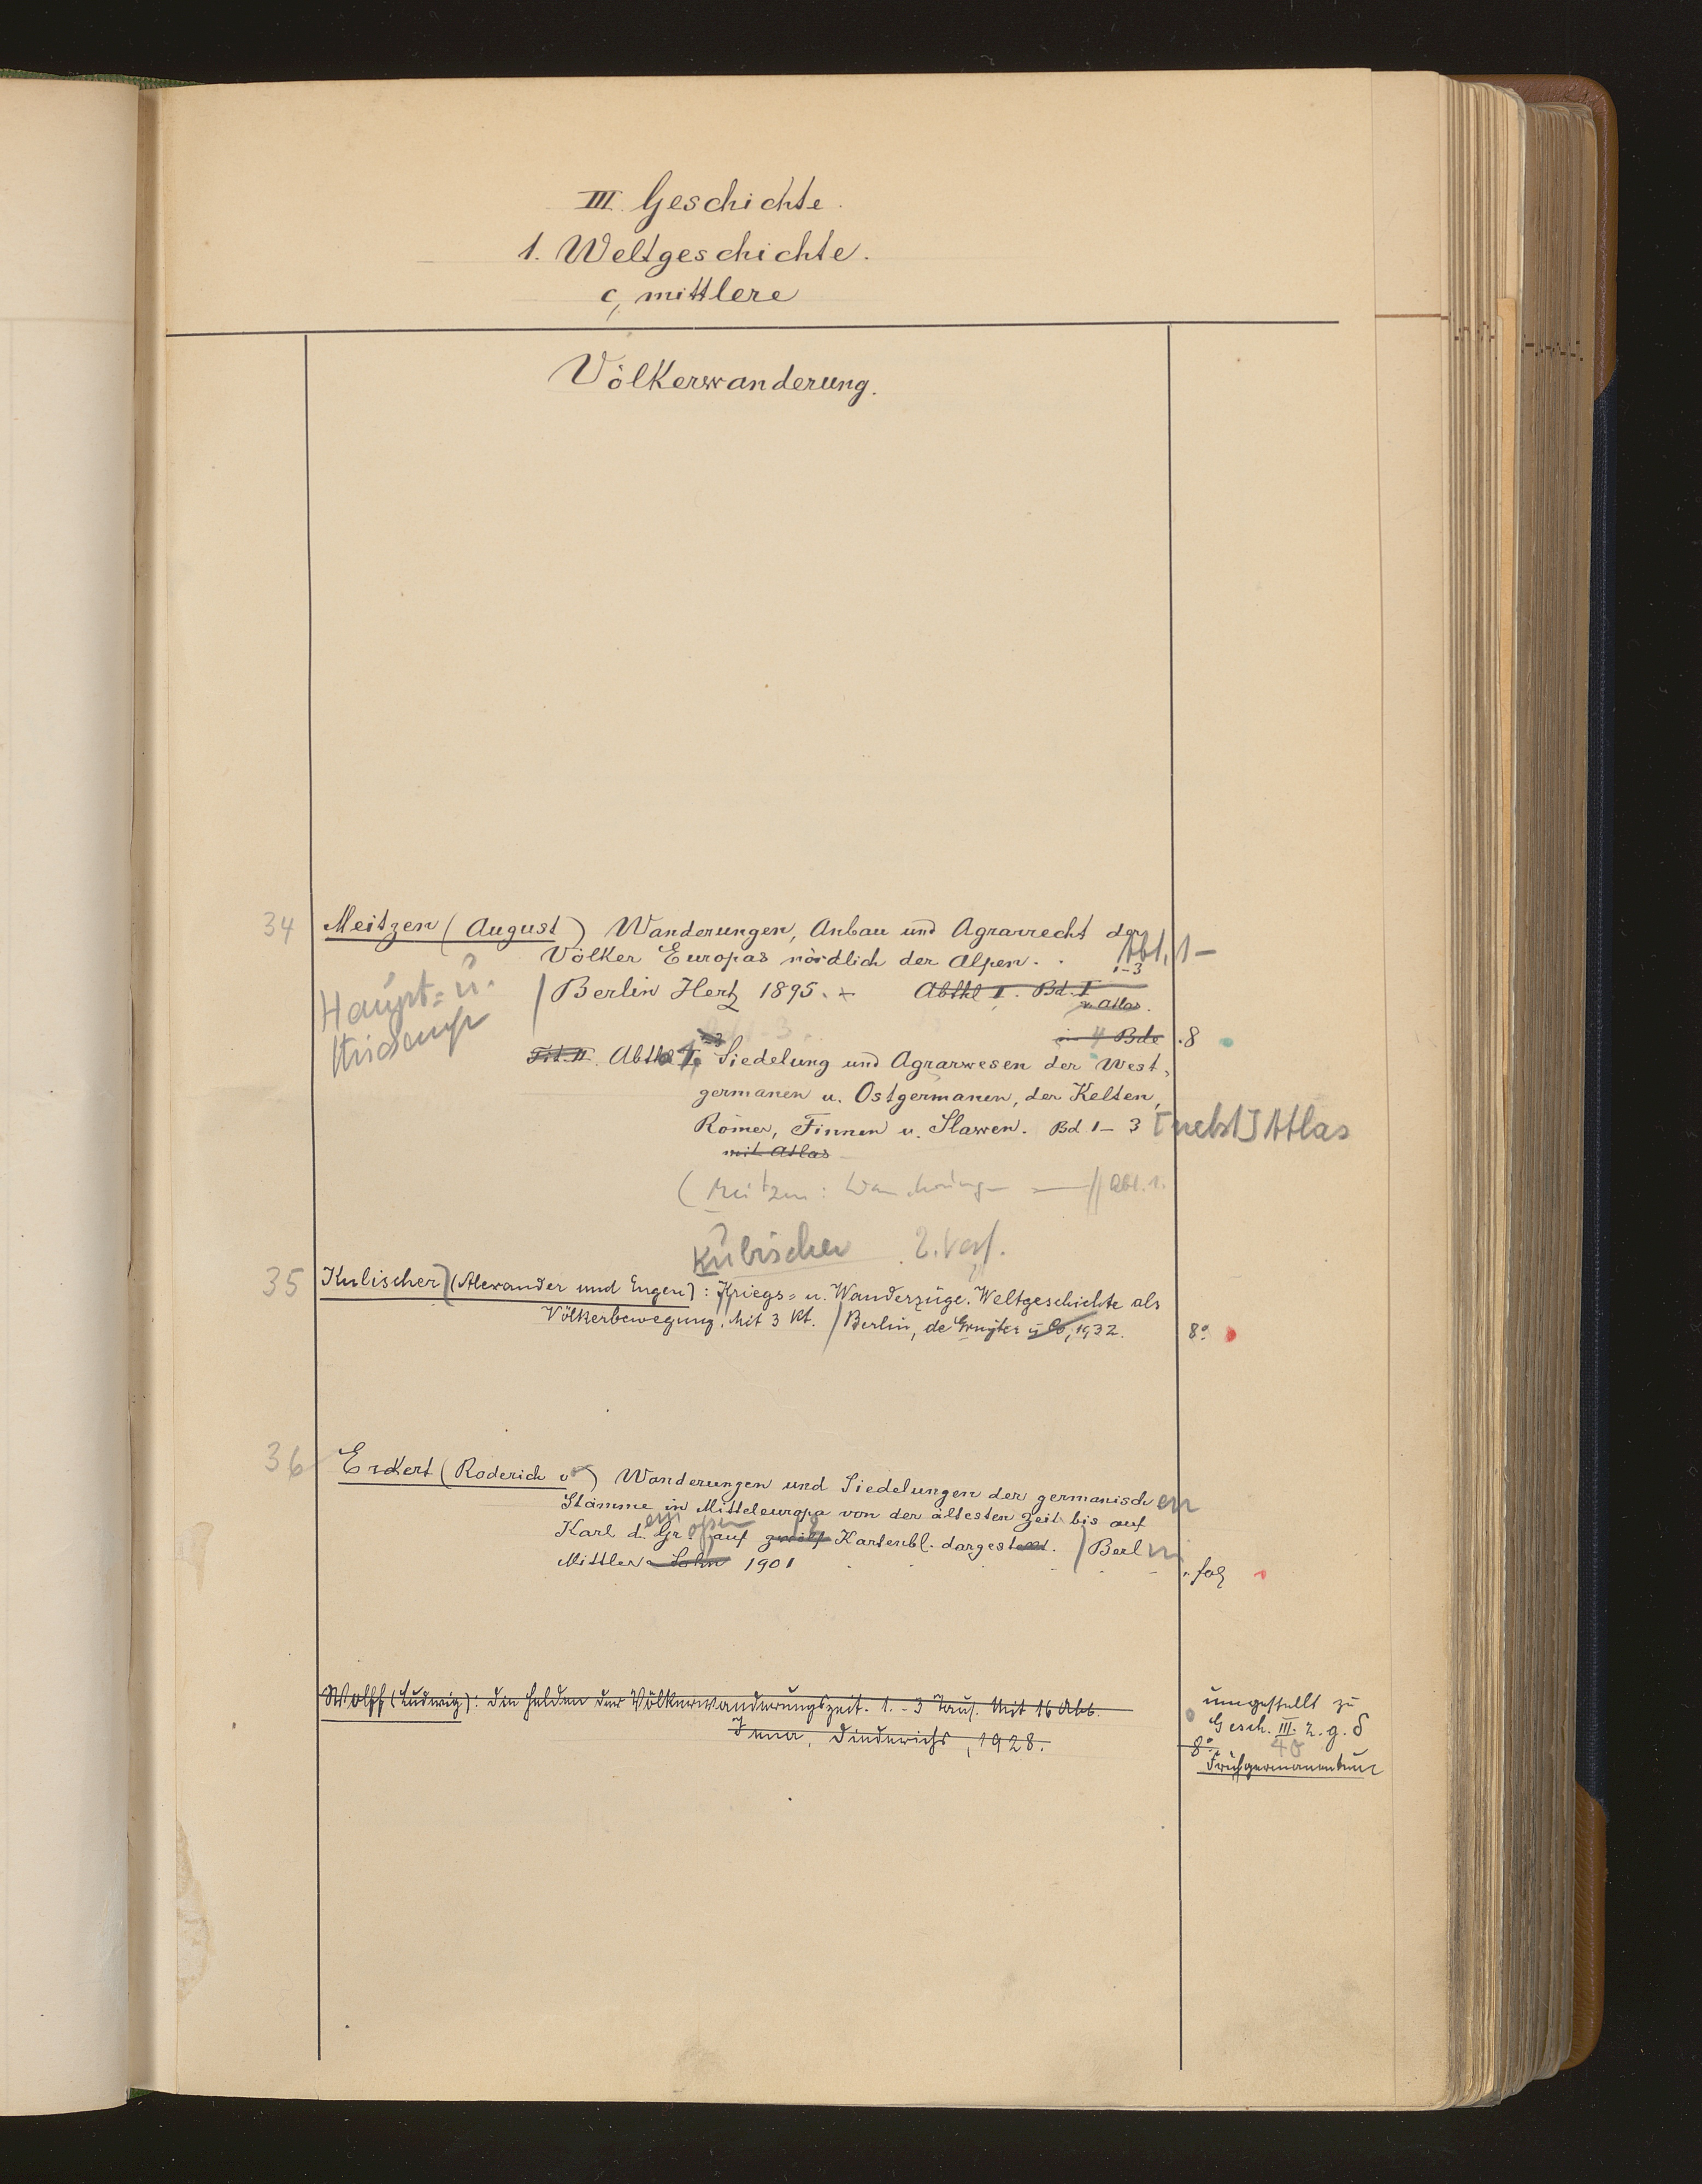 III. Geschichte.
1. Weltgeschichte.
c, mittlere
Völkerwanderung.
34 Meitzen (August) Wanderungen, Anbau und Agrarrecht der
Völker Europas nördlich der Alpen. . Abt. 1-
Haupt= u.
/ Berlin Hertz 1895. + Abthl I. Bd. I 1-3
u. Atlas.
in 4 Bde . 8
Tit. II. Abthl I. Siedelung und Agrarwesen der West=
germanen u. Ostgermanen, der Kelten,
Römer, Finnen u. Slawen. Bd 1-3 [nebst] Atlas
mit Atlas
(Meitzen: Wanderungen // Abt. 1.
Kulischer 2. Verf.
35 Kulischer (Alexander und Eugen): Kriegs= u. Wanderzüge. Weltgeschichte als
Völkerbewegung. Mit 3 Kt. / Berlin, de Gruyter u Co, 1932. 8°
36 Erckert (Roderich v) Wanderungen und Siedelungen der germanischen
Stämme in Mitteleuropa von der ältesten Zeit bis auf
Karl d. Gr. auf zwölf Kartenbl. dargestellt. / Berlin
Mittler Sohn 1901 . fol
Wolff (Ludwig): Die Helden der Völkerwanderungszeit. 1.-3 Taus. Mit 16 Abb.
Jena, Diederichs, 1928. 8°
umgestellt zu
Gesch. III. 2. g. δ
40
Frühgermanentum